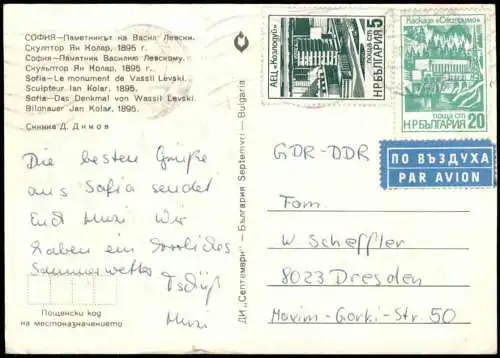 СОФИЯ–Паметникът на Васил Левски.
Скулптор Ян Колар, 1895 г.
София–Памятник Василию Левскому.
Скульптор Ян Колар, 1895.
Sofia–Le monument de Vassil Levski.
Sculpteur Ian Kolar, 1895.
Sofia–Das Denkmal von Wassil Lewski.
Bildhauer Jan Kolar, 1895.
Снимка Д. Димов
Die besten Grüße
aus Sofia sendet
Euch Muzi Wir
haben ein herrliches
Sommerwetter
Tschüß
Muzi
Пощенски код
на местоназначението
ДИ „Септември“ – България Septemvri – Bulgaria
АЕЦ „Козлодуй“
ПОЩА СТ 5
НР БЪЛГАРИЯ
Каскада
ПОЩА СТ
НР БЪЛГАРИЯ 20
GDR–DDR
ПО ВЪЗДУХА
PAR AVION
Fam.
W Scheffler
8023 Dresden
Maxim-Gorki-Str 50